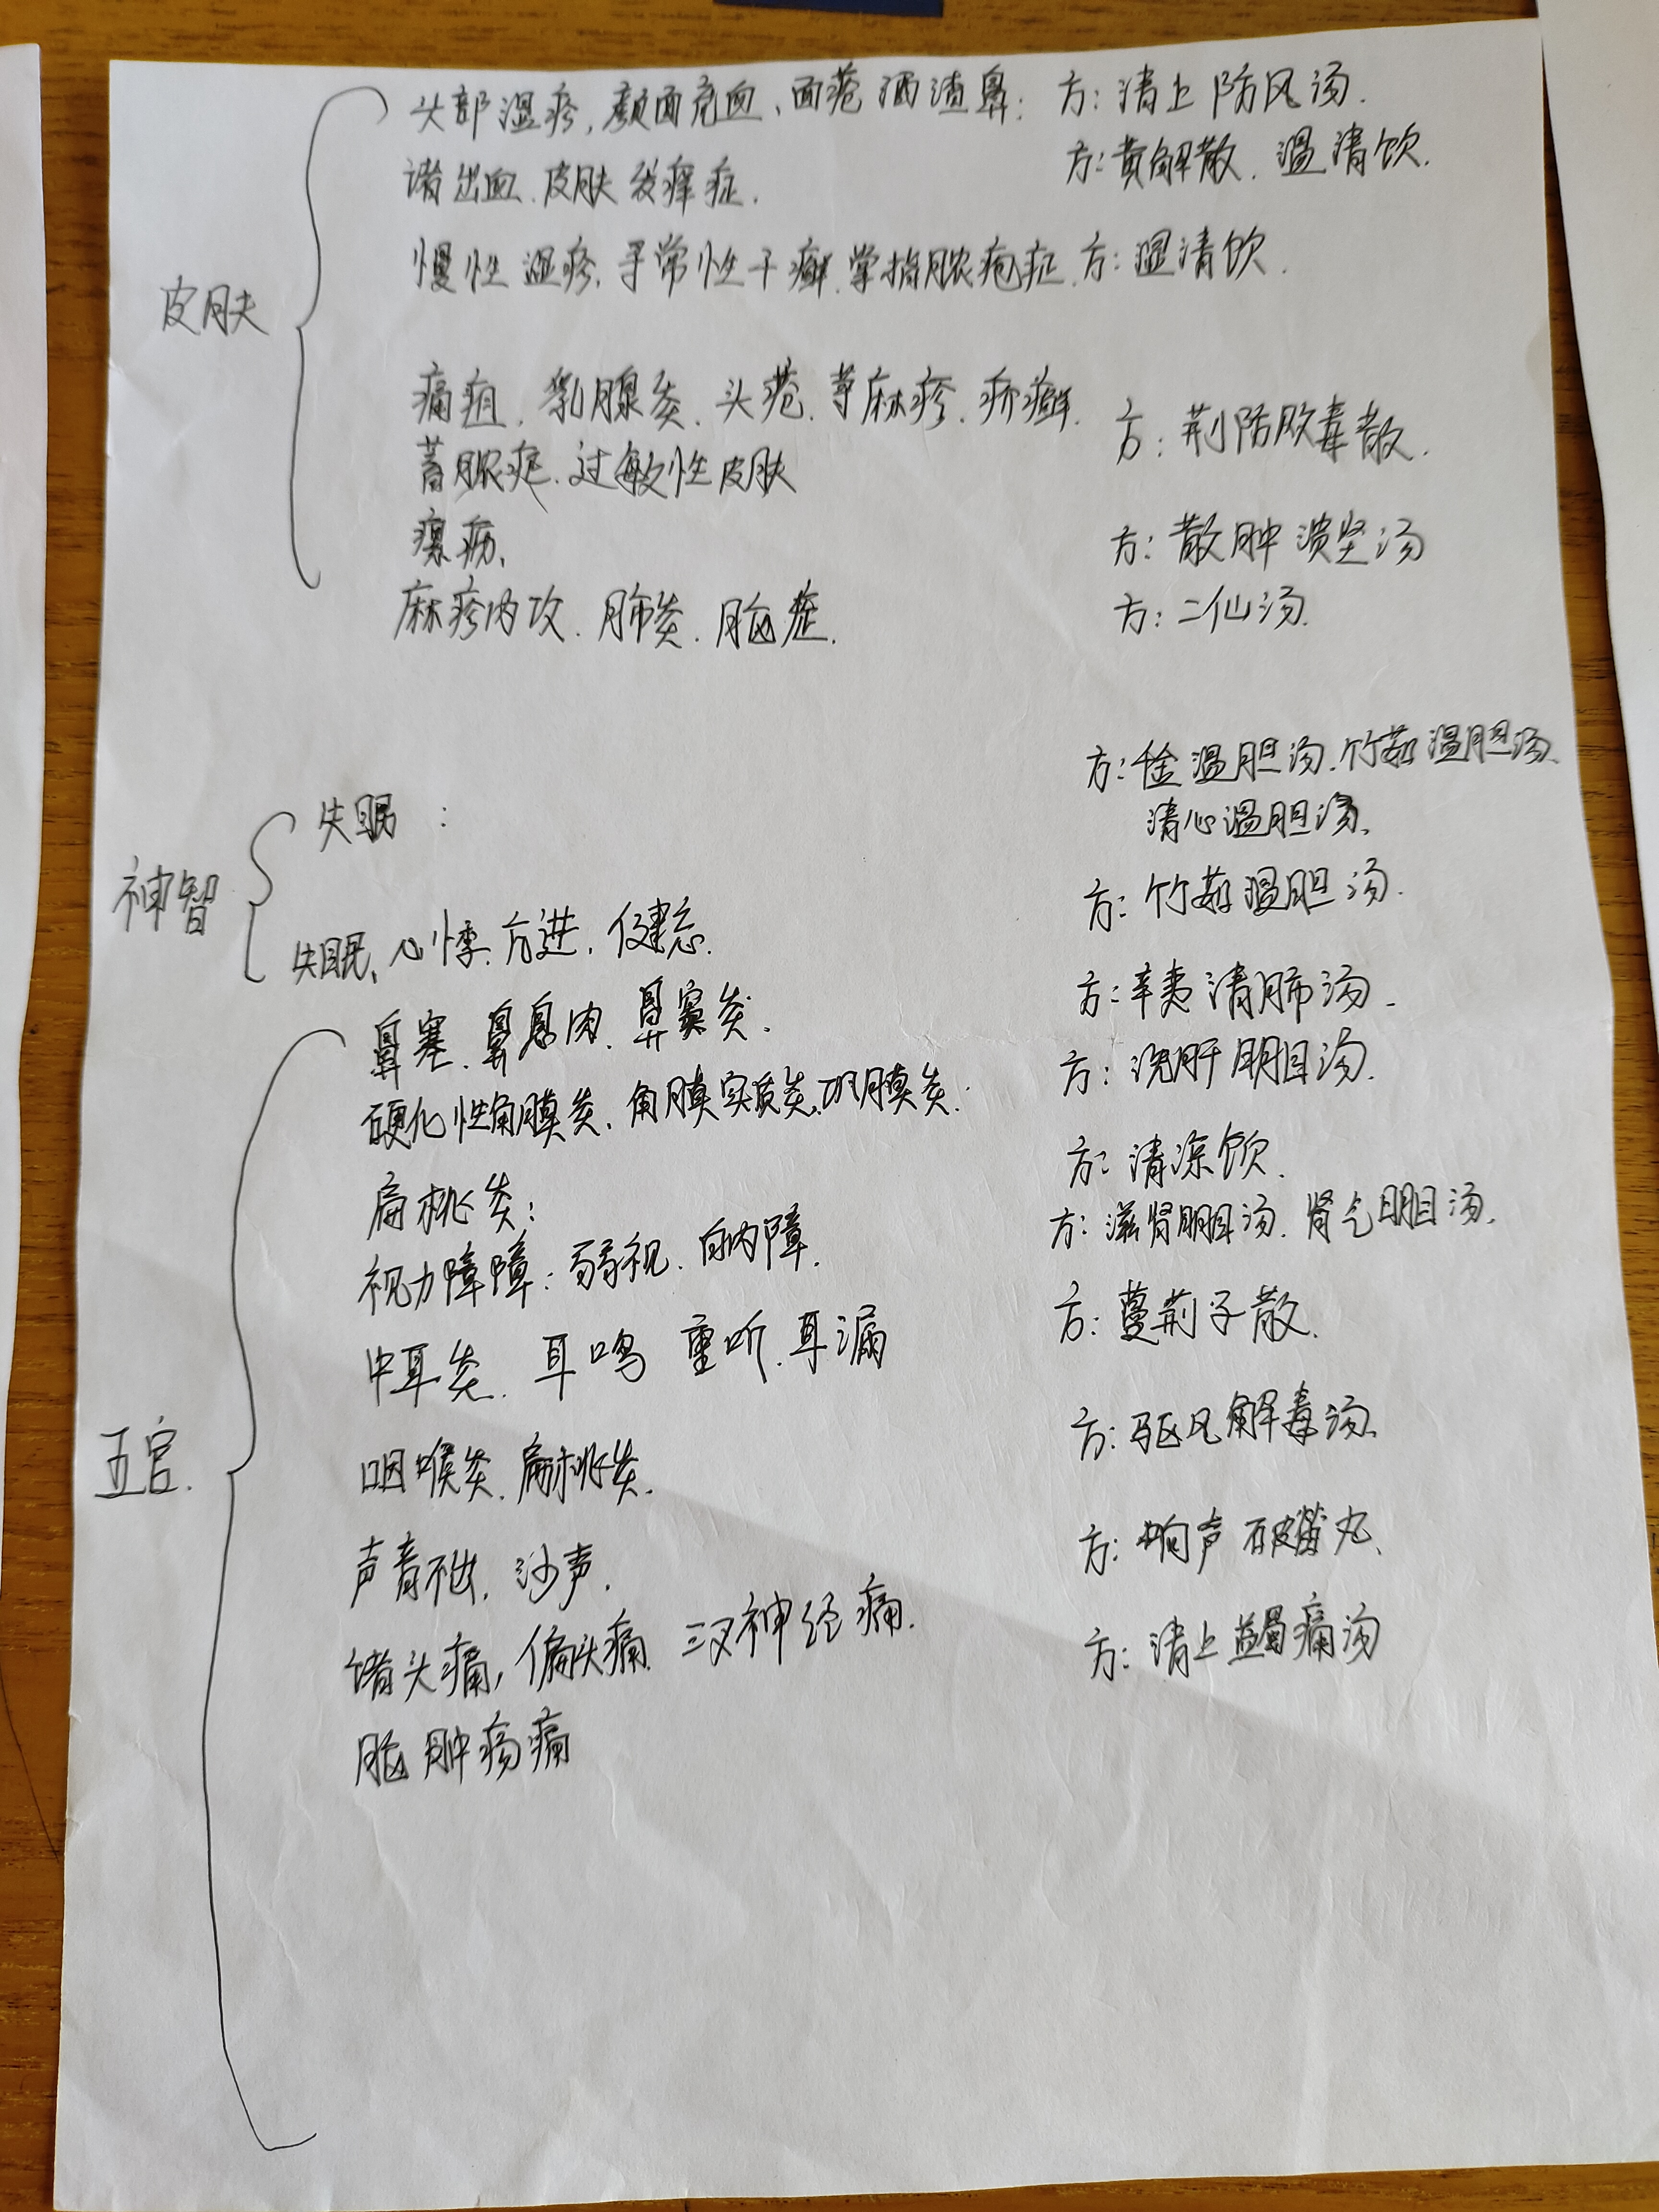 头部湿疹,颜面充血、面疮 酒渣鼻: 方:清上防风汤.
诸出血.皮肤发痒症. 方:黄解散.温清饮.
慢性湿疹.寻常性干癣.掌指脓疱症. 方:温清饮.
皮肤
痈疽.乳腺炎.头疮.荨麻疹.疥癣. 方:荆防败毒散.
蓄脓症.过敏性皮肤
瘰疬、 方:散肿溃坚汤
麻疹内攻.肺炎.脑症. 方:二仙汤.
方:千金温胆汤.竹茹温胆汤、
失眠: 清心温胆汤、
神智
失眠、心悸亢进.健忘. 方:竹茹温胆汤.
鼻塞.鼻息肉.鼻窦炎. 方:辛夷清肺汤.
硬化性角膜炎.角膜实质炎.巩膜炎. 方:洗肝明目汤.
扁桃炎: 方:清凉饮.
视力障障:弱视.白内障. 方:滋肾明目汤.肾气明目汤.
中耳炎.耳鸣 重听.耳漏 方:蔓荆子散.
五官.
咽喉炎.扁桃炎. 方:驱风解毒汤、
声音不出.沙声. 方:响声破笛丸、
诸头痛,偏头痛.三叉神经痛. 方:清上蠲痛汤
脑肿疡痛